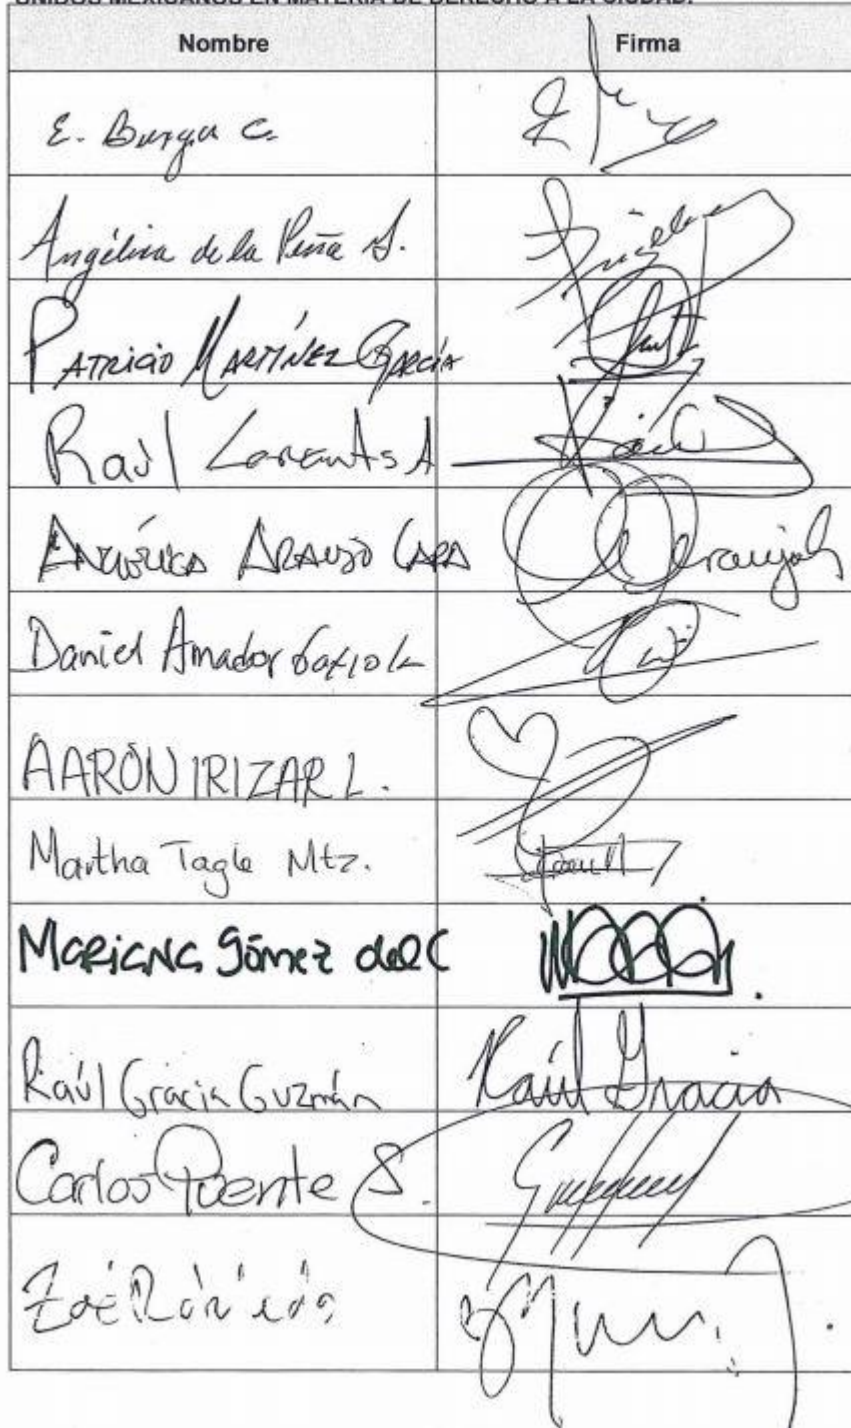 UNIDOS MEXICANOS EN MATERIA DE DERECHO A LA CIUDAD.
Nombre Firma
E. Burgos C.
Angélica de la Peña G. Angélica
PATRICIO MARTÍNEZ GARCÍA
Raúl A
ANGÉLICA ARAUJO LARA Araujo
Daniel Amador Gaxiola
AARÓN IRIZAR L.
Martha Tagle Mtz.
Mariana Gómez del C
Raúl Gracia Guzmán Raúl Gracia
Carlos Puente S.
Zoé